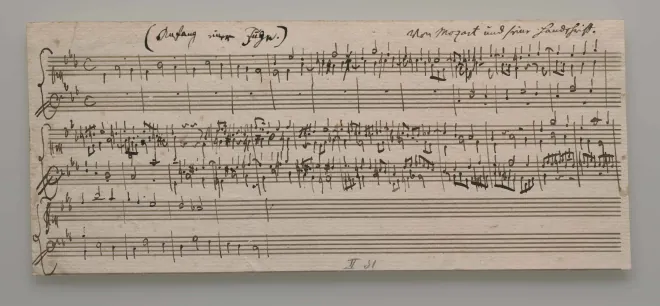 (Anfang einer Fuge.)
Von Mozart und seine Handschrift.